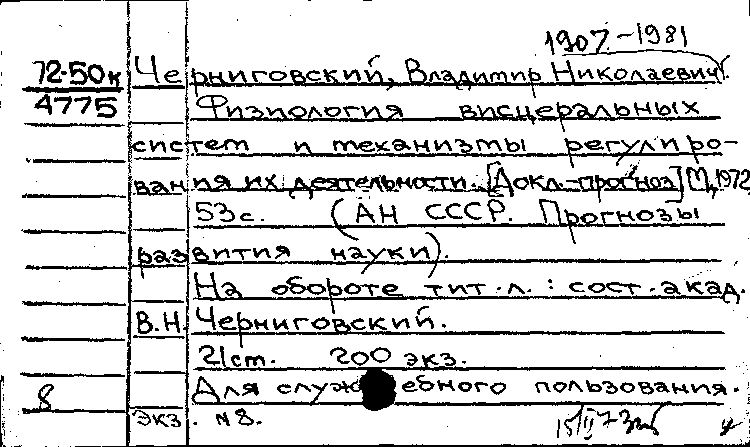 1907-1981
72-50к Черниговский, Владимир Николаевич.
4775 Физиология висцеральных
систем и механизмы регулиро-
вания их деятельности. [Докл.-прогноз] М, 1972
53 с. (АН СССР. Прогнозы
развития науки).
На обороте тит. л. : сост. акад.
В.Н. Черниговский.
21 cm. 200 экз.
8 Для служебного пользования.
экз. № 8.